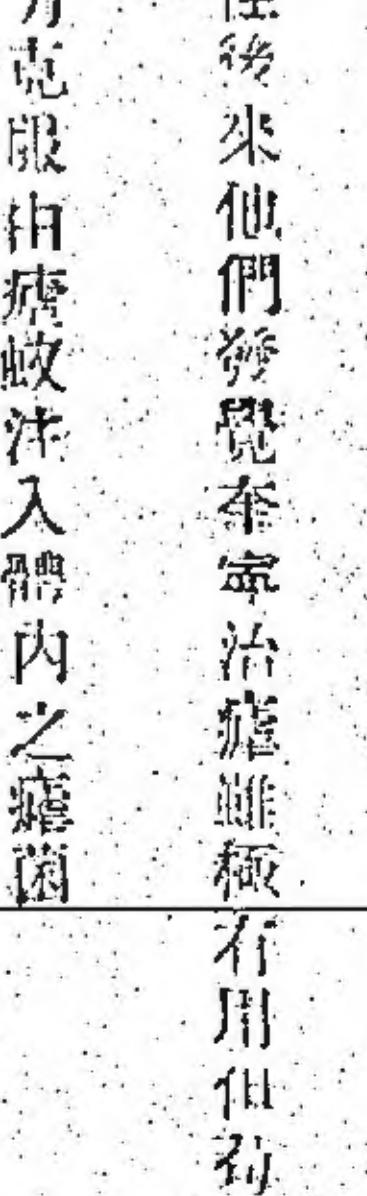 後來他們發覺奎寧治瘧雖極有用但到
克服由瘧蚊注入體內之瘧菌